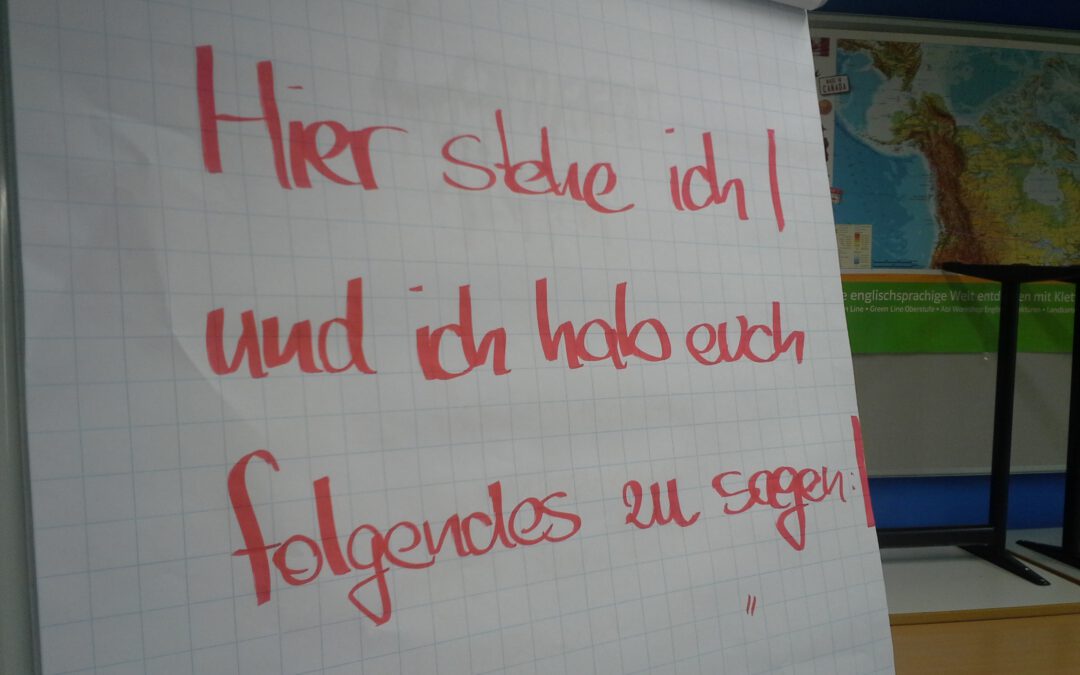 Hier stehe ich |
und ich hab euch
folgendes zu sagen: |
"
MADE IN CANADA
e englischsprachige Welt entd en mit Klett
Line • Green Line Oberstufe • Abi Workshop Engli kturen • Landkart